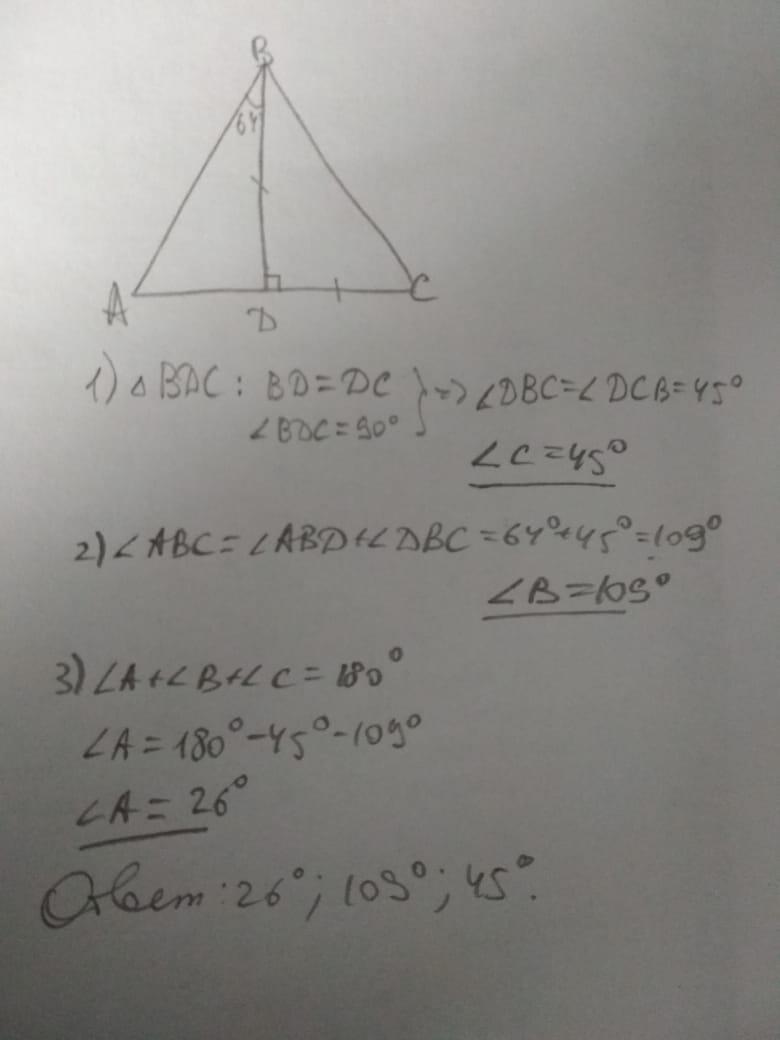 B
64
A
D
C
1) △BDC : BD = DC } => ∠DBC = ∠DCB = 45°
∠BDC = 90°
∠C = 45°
2) ∠ABC = ∠ABD + ∠DBC = 64° + 45° = 109°
∠B = 109°
3) ∠A + ∠B + ∠C = 180°
∠A = 180° - 45° - 109°
∠A = 26°
Ответ: 26°; 109°; 45°.